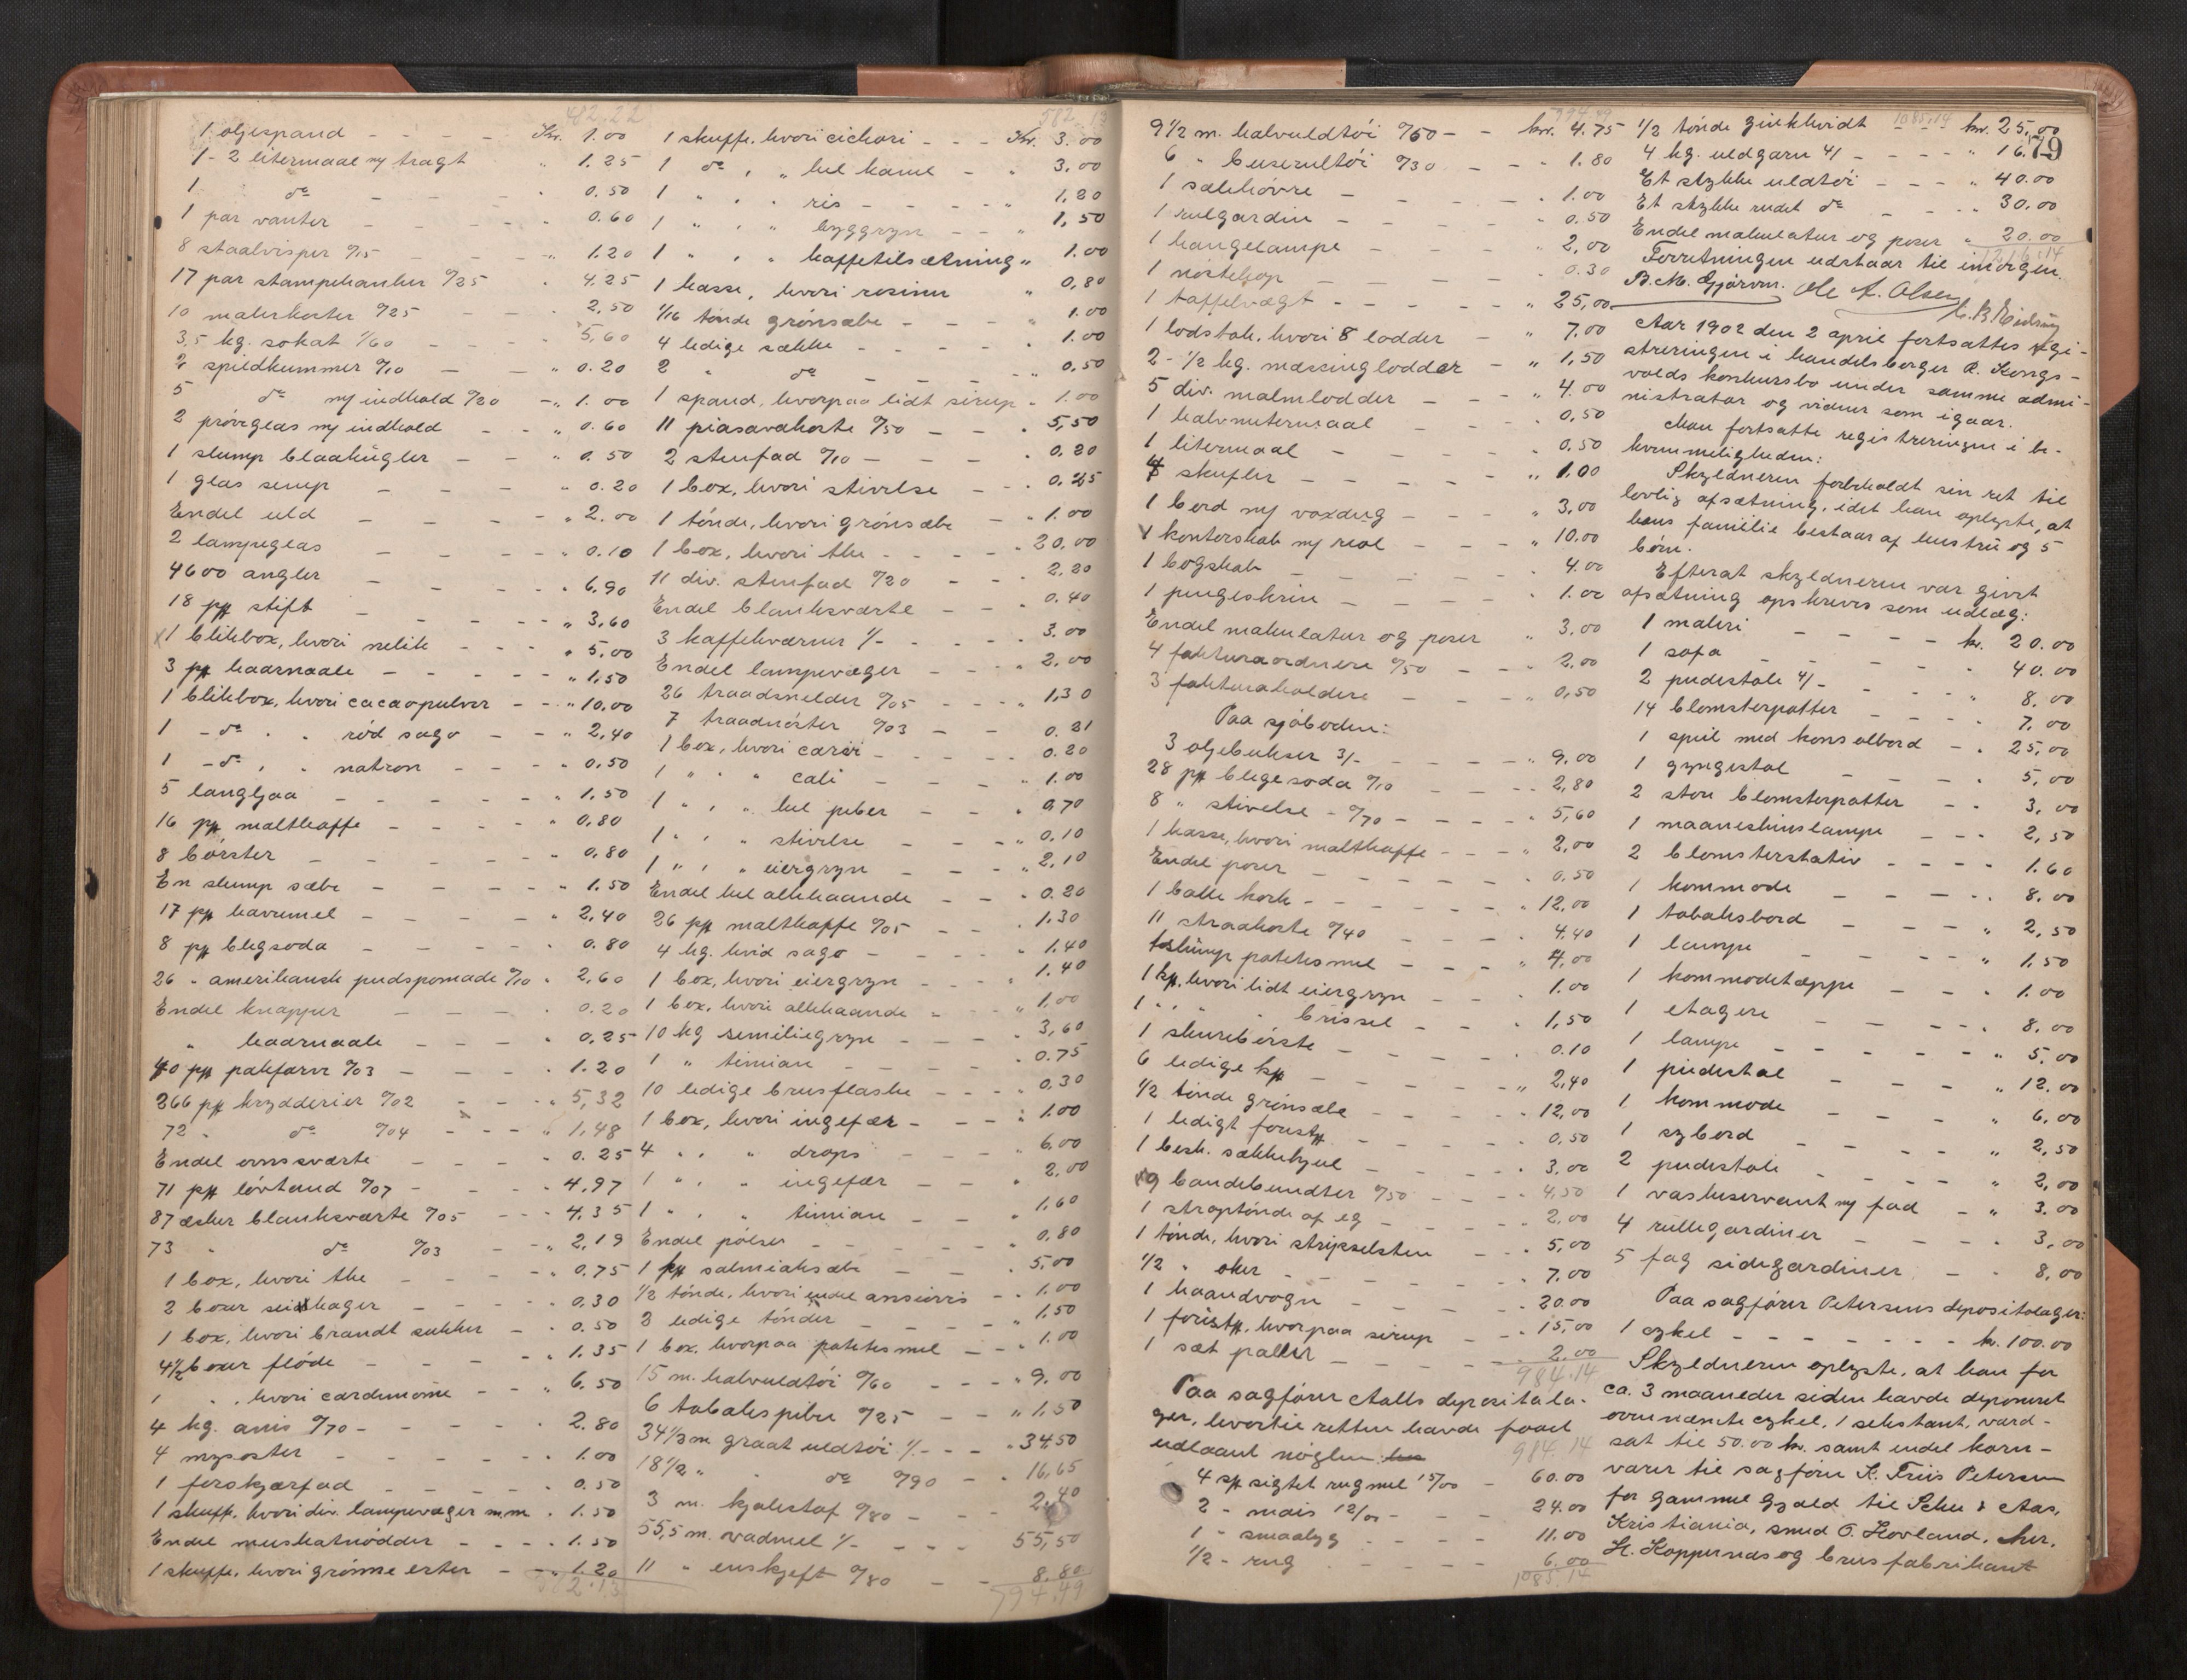 482.22
1 oljespand - - - - Kr. 1.00
1 - 2 litermaal m/ tragt " 1.25
1 do - - - - " 0.50
1 par vanter - - - - 0.60
8 staalvisper %15 - - - " 1.20
17 par stampehanker %25 " 4.25
10 malerkoster %25 - - - 2.50
3,5 kg. sokat 1/60 - - - - 5,60
2 spildkummer %10 - - " 0.20
5 do m/ indhold %20 - " 1.00
2 prøveglas m/ indhold - - " 0.60
1 slump blaakugler - - " 0.50
1 glas sirup - - - " 0.20
Endel uld - - - - " 2.00
2 lampeglas - - - " 0.10
4600 angler - - - - " 6,90
18 pk stift - - - - - " 3,60
1 blikbox, hvori nelik - - - " 5.00
3 pk haarnaale - - - - - " 1,50
1 blikbox, hvori cacaopulver - - " 10,00
1 - do " " rød sago - - " 2,40
1 - do " " natron - - - " 0.50
5 langljaa - - - - - " 1,50
16 pk maltkaffe - - - - " 0,80
8 børster - - - - - " 0,80
En slump sæbe - - - - " 1.50
17 pk havremel - - - - " 2,40
8 pk blegsoda - - - - " 0.80
26 " amerikansk pudspomade %10 " 2,60
Endel knapper - - - " 0.20
" haarnaale - - - " 0,25
40 pk pakfarve %03 - - - " 1.20
266 pk krydderier %02 - - - " 5,32
72 " do %04 - - - " 1,48
Endel ovnsværte - - - " 0.25
71 pk løvtand %07 - - - " 4,97
87 æsker blanksværte %05 - - - 4.35
73 " do %03 - - " 2,19
1 box, hvori the - - - - " 0.75
2 boxer seidhager - - - " 0,30
1 box, hvori brandt sukker - " 0.50
4 1/2 boxer fløde - - - - " 1.35
1 " , hvori cardemome - - " 6,50
4 kg. anis %70 - - - - " 2.80
4 mysoster - - - - - " 1.00
1 ferskjærfad - - - - " 0.50
1 skuff, hvori div. lampevæger m.m. " 1.50
Endel muskatnødder - - - - 1.50
1 skuffe, hvori grønne erter - - " 1.20
582.13
582.13
1 skuffe, hvori cichori - - - Kr. 3.00
1 do , " hel kanel - " 3,00
1 " , " ris - - - - " 1,20
1 " , " byggryn - - " 1,50
1 " , " kaffetilsætning " 1.00
1 kasse, hvori rosiner " 0,80
1/16 tønde grønsæbe - - - " 1.00
4 ledige sække - - - - " 1.00
2 " do - - - - " 0,50
1 spand, hvorpaa lidt sirup " 1.00
11 piasavakoste %50 - - " 5,50
2 stenfad %10 - - - " 0.20
1 box, hvori stivelse - - " 0.25
1 tønde, hvori grønsæbe - " 1.00
1 box, hvori the - - - - " 20,00
11 div. stenfad %20 - - " 2.20
Endel blanksværte - - " 0.40
3 kaffekværner 1/- - - - - 3.00
Endel lampevæger - - - " 2.00
26 traadsnelder %05 - - - " 1,30
7 traadnøster %03 - - 0.21
1 box, hvori carvi - - - - 0.20
1 " " " cali - - - " 1.00
1 " , " hel peber - - " 0,70
1 " , " stivelse - - - " 0,10
1 " , " eiergryn - - - " 2,10
Endel hel allehaande - - " 0.20
26 pk maltkaffe %05 - - " 1.30
4 kg. hvid sago - - - - " 1,40
1 box, hvori eiergryn - - - " 1.40
1 box, hvori allehaande - - " 1,00
10 kg semiliegryn - - - " 3,60
1 " timian - - - - " 0.75
10 ledige brusflaske - - " 0,30
1 box, hvori ingefær - - - " 1.00
4 " , " drops - - - " 6,00
1 " , " ingefær - - " 2,00
1 " , " timian - - " 1,60
Endel pølser - - - - " 0,80
1 kp salmiaksæbe - - - " 5.00
1/2 tønde, hvori endel ansiovis - " 1.00
3 ledige tønder - - - - " 1,50
1 box, hvorpaa potetesmel - - " 1.00
15 m. halvuldtøi %60 - - - - " 9.00
6 tobakspiber %25 - - " 1,50
34 1/2 m graat uldtøi 1/- - - - " 34,50
18 1/2 " " do %90 - " 16,65
3 m. kjolestof %80 - - - 2,40
55,5 m. vadmel 1/- - - - - 55,50
11 " enskjeft %80 - - 8.80
794.49
794.49
9 1/2 m. halvuldtøi %50 - - kr. 4.75
6 " buserultøi %30 - - - " 1.80
1 sækkhovre - - - - - " 1.00
1 rulgardin - - - - - " 0.50
1 hængelampe - - - - " 2,00
1 nøstekop - - - - - 0.30
1 taffelvægt - - - - - " 25,00
1 lodstok, hvori 8 lodder - " 7,00
2 - 1/2 kg. messinglodder - " 1,50
5 div. malmlodder - - - " 4.00
1 halvmetermaal - - - - " 0,50
1 litermaal - - - - - " 0,50
4 skufler - - - - - " 1.00
1 bord m/ voxdug - - - - " 3,00
1 kontorskab m/ reol - - - " 10.00
1 bogskab - - - - - 4.00
1 pengeskrin - - - - - " 1.00
Endel makulatur og poser " 3,00
4 fakturaordnere %50 - - " 2,00
3 fakturaholdere - - - " 0,50
Paa sjøboden:
3 oljebukser 3/- - - - - - " 9,00
28 pk blegesoda %10 - - - - 2,80
8 " stivelse - %70 - - - - " 5,60
1 kasse, hvori maltkaffe - - - " 2,00
Endel poser - - - - - - " 0.50
1 balle kork - - - - - - " 12,00
11 straakoste %40 - - - " 4.40
1 slump potetesmel - - - " 4,00
1 kp, hvori lidt eiergryn - - " 1.00
1 " , " brissel - - " 1,50
1 skurebørste - - - - - " 0.10
6 ledige kp - - - - - " 2,40
1/2 tønde grønsæbe - - - - " 12,00
1 ledigt foustp - - - - - " 0,50
1 besk. sækkehjul - - - - " 3,00
9 bandebundter %50 - - - - 4,50
1 straptønde af eg - - - - " 2,00
1 tønde, hvori strijeselsten - - " 5,00
1/2 " oker - - - - - - " 7.00
1 haandvogn - - - - - " 20.00
1 foustp, hvorpaa sirup - - " 15,00
1 sæt paller - - - - - 2.00
984.14
Paa sagfører Aalls depositola-
ger, hvortil retten havde faaet
udlaant nøglen
984.14
4 sk sigtet rugmel 15/00 - 60.00
2 - mais 12/00 - - - 24.00
1 " smaabyg - - - - 11.00
1/2 - rug - - - - 6.00
1085.14
1085.14
79
1/2 tønde zinkhvidt - - - kr. 25,00
4 kg. uldgarn 4/- - - - - " 16.00
Et stykke uldtøi - - - " 40.00
Et stykke rudet do - - - " 30.00
Endel makulatur og poser " 20.00
1216.14
Forretningen udstaar til imorgen.
B. M. Gjørven. Ole A. Olsen
Aar 1902 den 2 april fortsattes regi-
streringen i handelsborger R. Kongs-
volds konkursbo under samme admi-
nistrator og vidner som igaar.
Man fortsatte registreringen i be-
kvemmeligheden:
Skyldneren forbeholdt sin ret til
lovlig afsætning, idet han oplyste, at
hans familie bestaar af hustru og 5
børn.
Efterat skyldneren var givet
afsætning opskreves som udlæg:
1 maleri - - - - - kr. 20.00
1 sofa - - - - - " 40.00
2 pudestole 4/- - - - - " 8.00
14 blomsterpotter - - - - 7.00
1 speil med konsolbord - " 25,00
1 gyngestol - - - - " 5,00
2 store blomsterpotter - " 3.00
1 maaneskinslampe - - - 2,50
2 blomsterstativ - - - - 1.60
1 kommode - - - - " 8.00
1 tobaksbord - - - - " 2,50
1 lampe - - - - - " 1.50
1 kommodetæppe - - - " 1.00
1 etagere - - - - " 8,00
1 lampe - - - - - " 5.00
1 pudestol - - - - " 12.00
1 kommode - - - - " 6,00
1 sybord - - - - - " 2,50
2 pudestole - - - - " 2,00
1 vaskeservant m/ fad - " 3.00
4 rullegardiner - - - - " 3,00
5 fag sidegardiner - " 8,00
Paa sagfører Petersens depositolager:
1 cykel - - - - - - - kr. 100.00
Skyldneren oplyste, at han for
ca. 3 maaneder siden havde deponeret
ovennævnte cykel, 1 sekstant, værd-
sat til 50.00 kr. samt endel korn-
varer til sagfører K. Friis Petersen
for gammel gjæld til Scheu & Aas,
Kristiania, smed O. Hovland, her,
H. Koppernæs og brusfabrikant